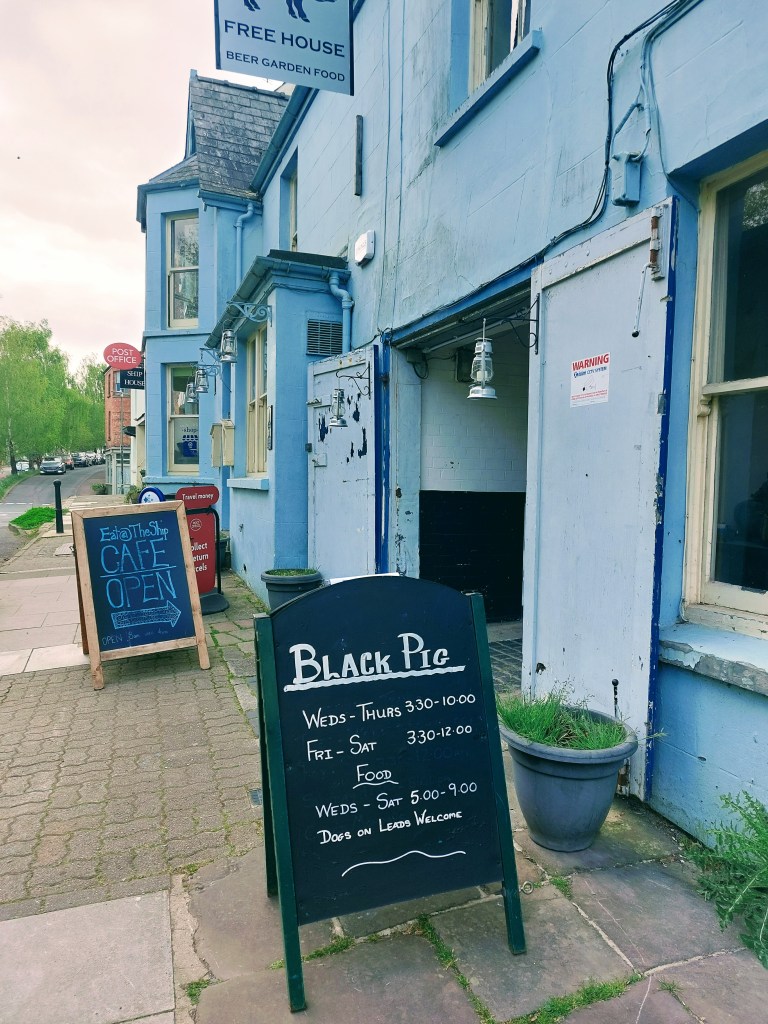 FREE HOUSE
BEER GARDEN FOOD
POST
OFFICE
SHIP
HOUSE
WARNING
Travel money
Eat@TheShip
CAFE
OPEN
OPEN
BLACK PIG
WEDS - THURS 3.30-10.00
FRI - SAT 3.30-12.00
FOOD
WEDS - SAT 5.00-9.00
DOGS ON LEADS WELCOME